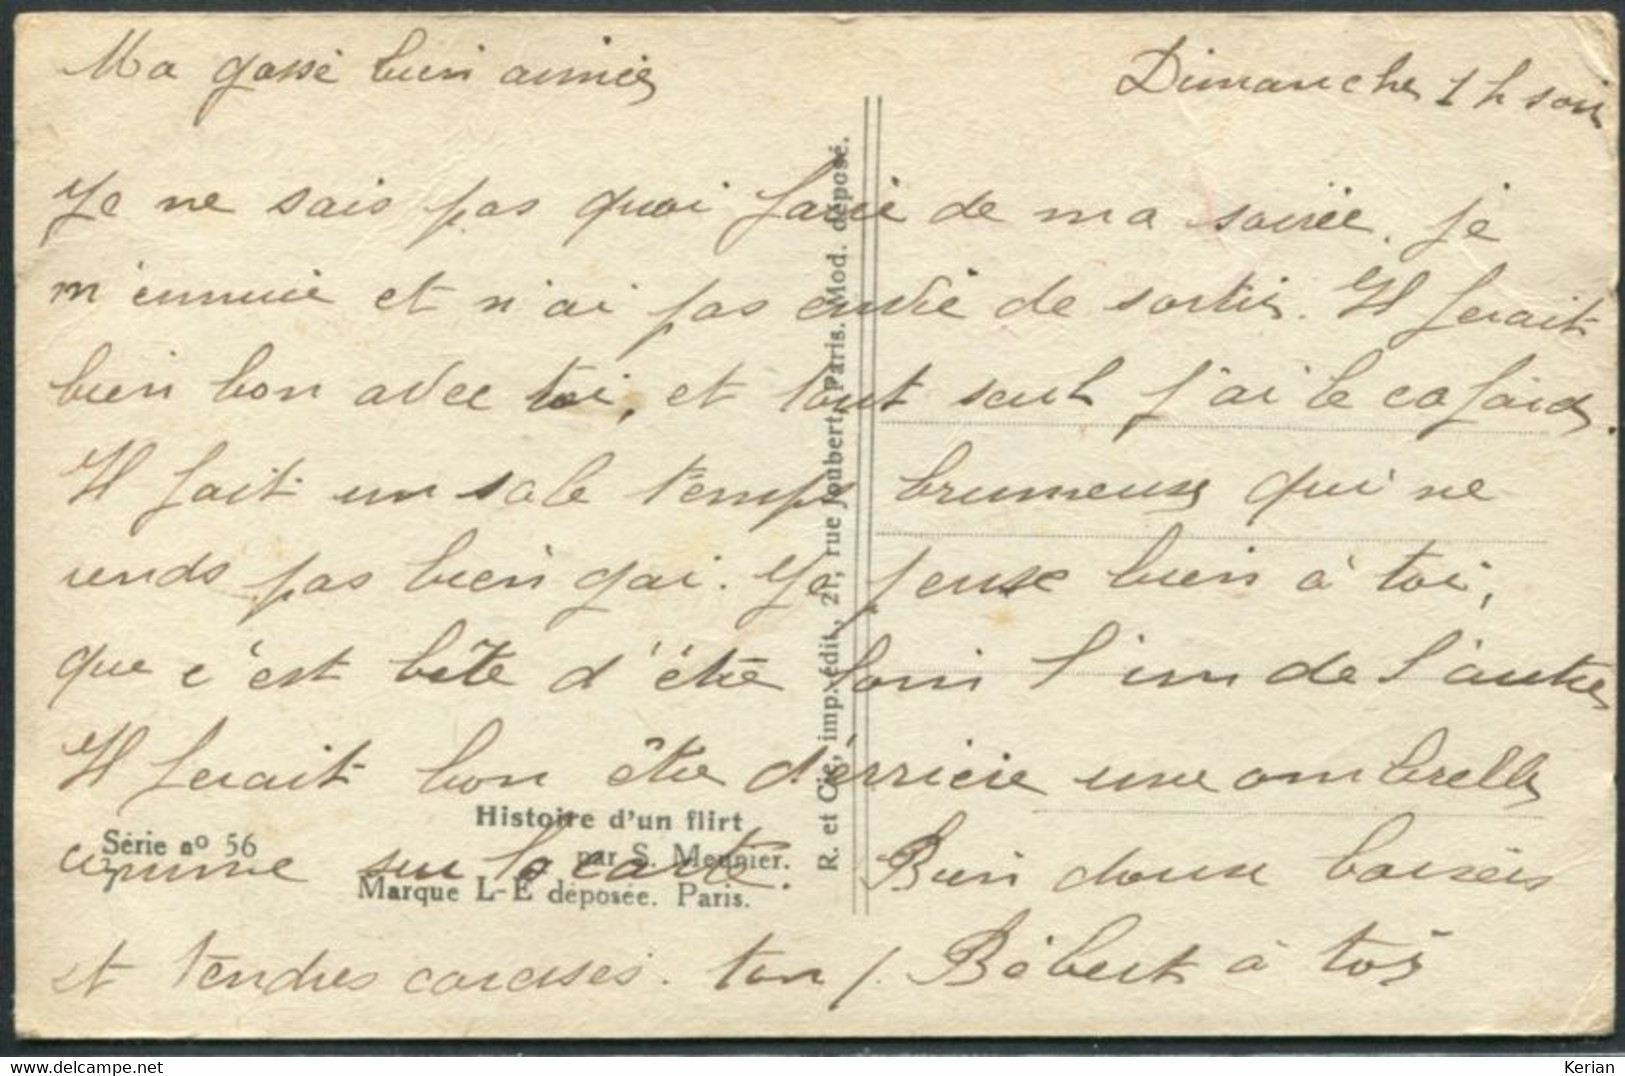 Ma gosse bien aimée
Dimanche 1 h soir
Je ne sais pas quoi faire de ma soirée. je
m'ennuie et n'ai pas envie de sortir. Il ferait
bien bon avec toi, et tout seul j'ai le cafard.
Il fait un sale temps brumeux qui ne
rends pas bien gai. Je pense bien à toi,
que c'est bête d'être loin l'un de l'autre
Il ferait bon être derrière une ombrelle
comme sur la carte. Bien doux baisers
et tendres caresses. ton Bébert à toi
Série nº 56
7
Histoire d'un flirt
par S. Meunier.
Marque L-E déposée. Paris.
R. et Cie, imp.-édit., 21, rue Joubert, Paris. Mod. déposé.
Kerian